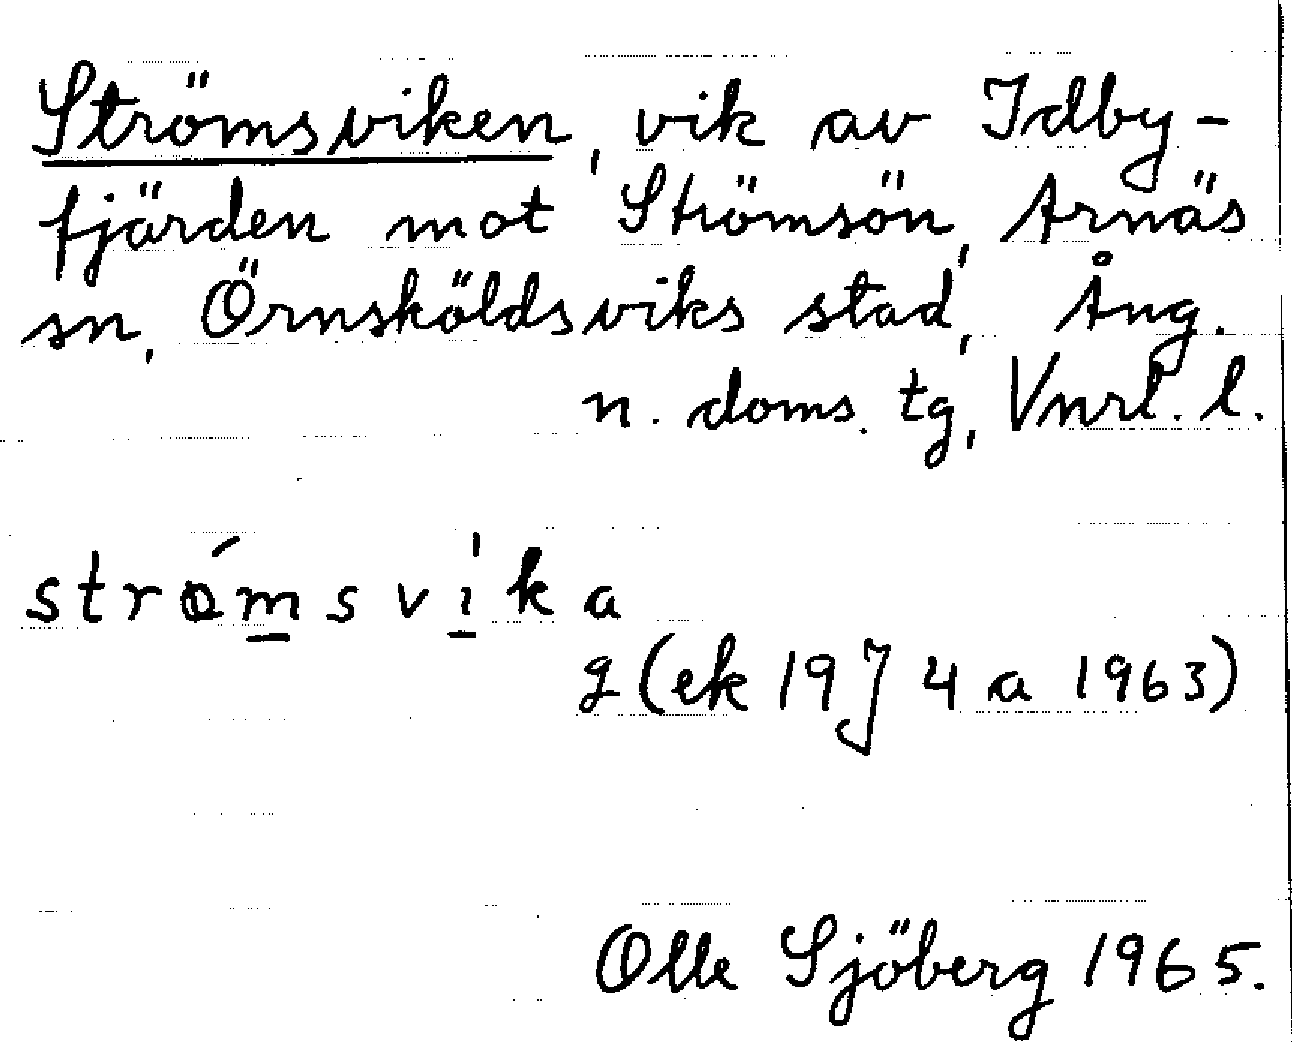 Strömsviken, vik av Idby-
fjärden mot Strömsön, Arnäs
sn, Örnsköldsviks stad, Ång.
n. doms. tg, Vnrl. l.
strǿm̲svi̲ka
g (ek 19J 4 a 1963)
Olle Sjöberg 1965.